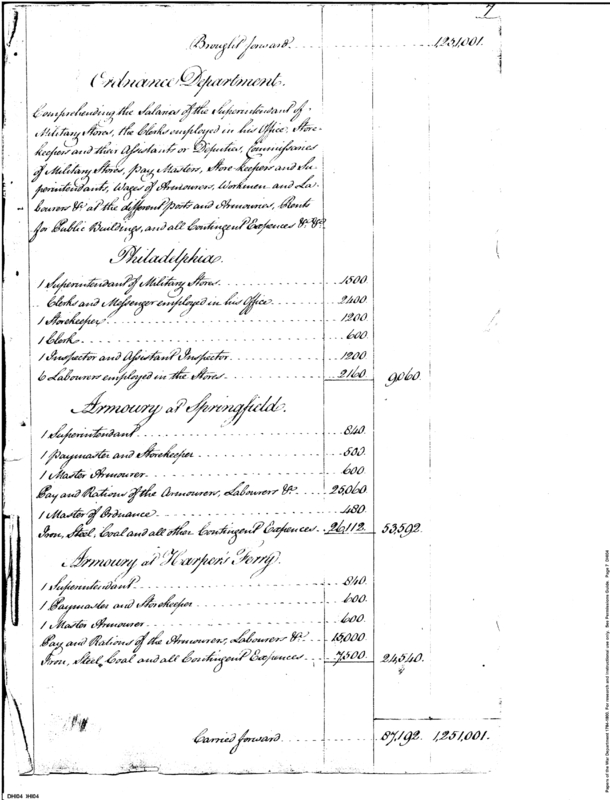 7
Brought forward 1,251,001.
Ordnance Department.
Comprehending the Salaries of the Superintendant of
Military Stores, the Clerks employed in his Office, Store-
keepers and their Assistants or Deputies, Commissaries
of Military Stores, Pay Masters, Store-keepers and Su-
perintendants, Wages of Armourers, Workmen and La-
bourers &c at the different Posts and Armouries, Rents
for Public Buildings, and all Contingent Expences &c &c
Philadelphia.
1 Superintendant of Military Stores 1500.
Clerks and Messenger employed in his Office 2400
1 Storekeeper 1200
1 Clerk 600
1 Inspector and Assistant Inspector 1200
6 Labourers employed in the Stores 2160. 9,060.
Armoury at Springfield.
1 Superintendant 840.
1 Paymaster and Storekeeper 500.
1 Master Armourer 600.
Pay and Rations of the Armourers, Labourers &c. 25,060.
1 Master of Ordnance 480.
Iron, Steel, Coal and all other Contingent Expences 26,112. 53,592.
Armoury at Harper's Ferry.
1 Superintendant 840.
1 Paymaster and Storekeeper 600.
1 Master Armourer 600.
Pay and Rations of the Armourers, Labourers &c. 15,000
Iron, Steel, Coal and all Contingent Expences 7,500. 24,540.
Carried forward 87,192. 1,251,001.
DHI04 IHI04
Papers of the War Department 1784-1800. For research and instructional use only. See Permissions Guide. Page 7 DHI04